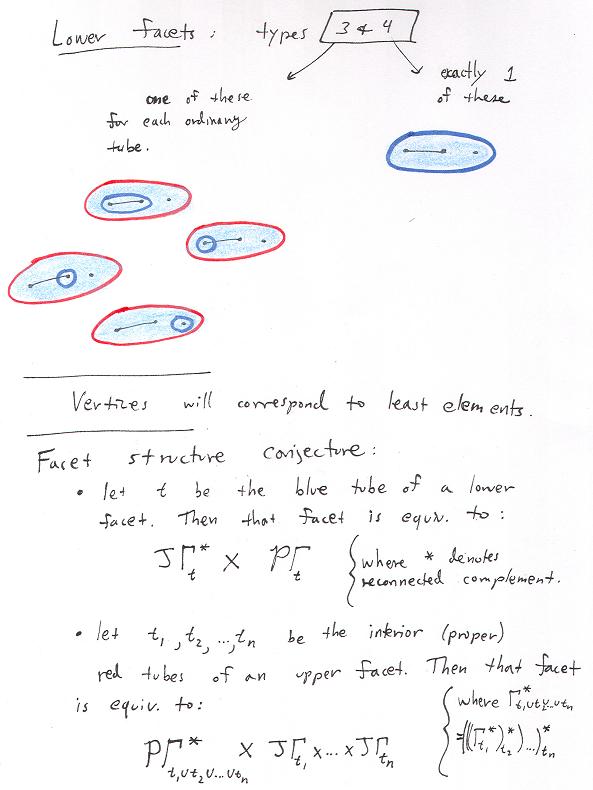 Lower facets: types 3 & 4
one of these
for each ordinary
tube.
exactly 1
of these
Vertices will correspond to least elements.
Facet structure conjecture:
• let t be the blue tube of a lower
facet. Then that facet is equiv. to:
JΓ*_t × PΓ_t {where * denotes
reconnected complement.
• let t₁, t₂, ..., tₙ be the interior (proper)
red tubes of an upper facet. Then that facet
is equiv. to:
PΓ*_{t₁∪t₂∪...∪tₙ} × JΓ_{t₁} × ... × JΓ_{tₙ}
{where Γ*_{t₁∪t₂∪...∪tₙ}
=(((Γ_{t₁}*)_{t₂}*)...)*_{tₙ}